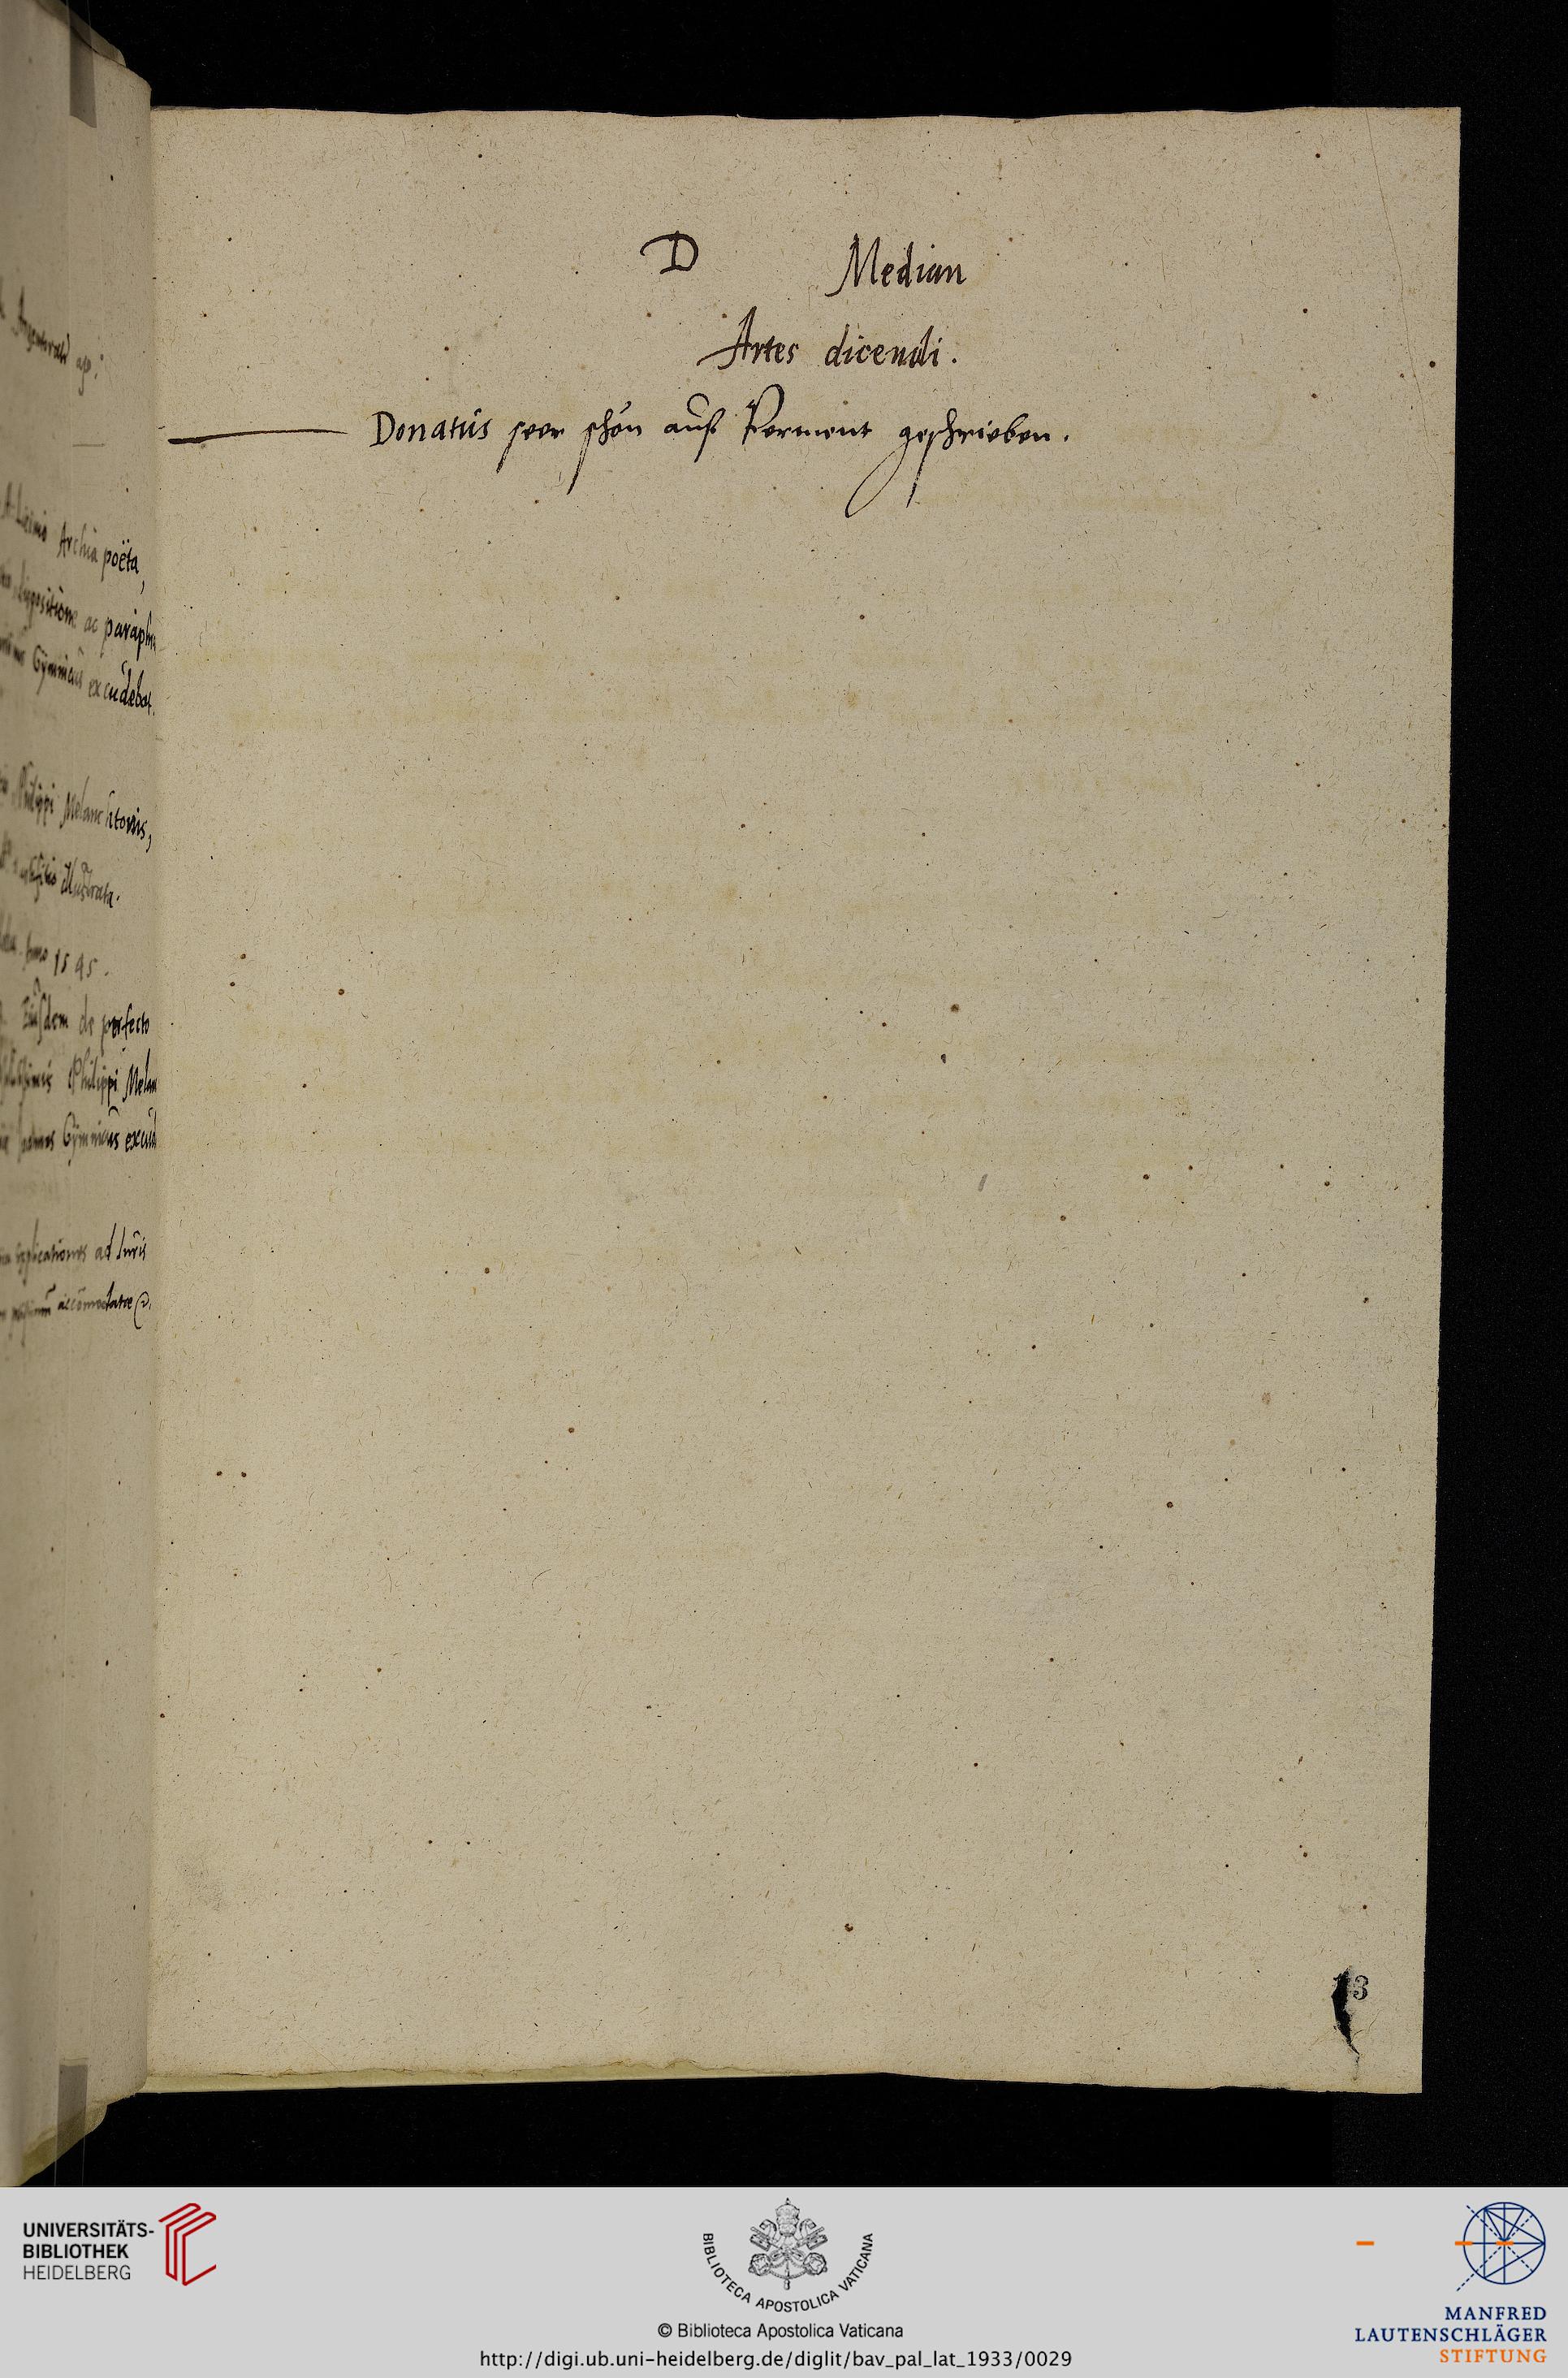 D Median
Artes dicendi.
Donatus seer schön auff Perment geschrieben.
Archia poëta,
positione ac paraphr
Gÿmnicus excudebat.
Philippi Melanchtonis,
illustrata.
Anno 1545.
Eiusdem de perfecto
Philippi Melan
Gÿmnicus excud
applicationes ad Iuris
accomodatae
13
UNIVERSITÄTS-
BIBLIOTHEK
HEIDELBERG
BIBLIOTECA APOSTOLICA VATICANA
© Biblioteca Apostolica Vaticana
http://digi.ub.uni-heidelberg.de/diglit/bav_pal_lat_1933/0029
MANFRED
LAUTENSCHLÄGER
STIFTUNG